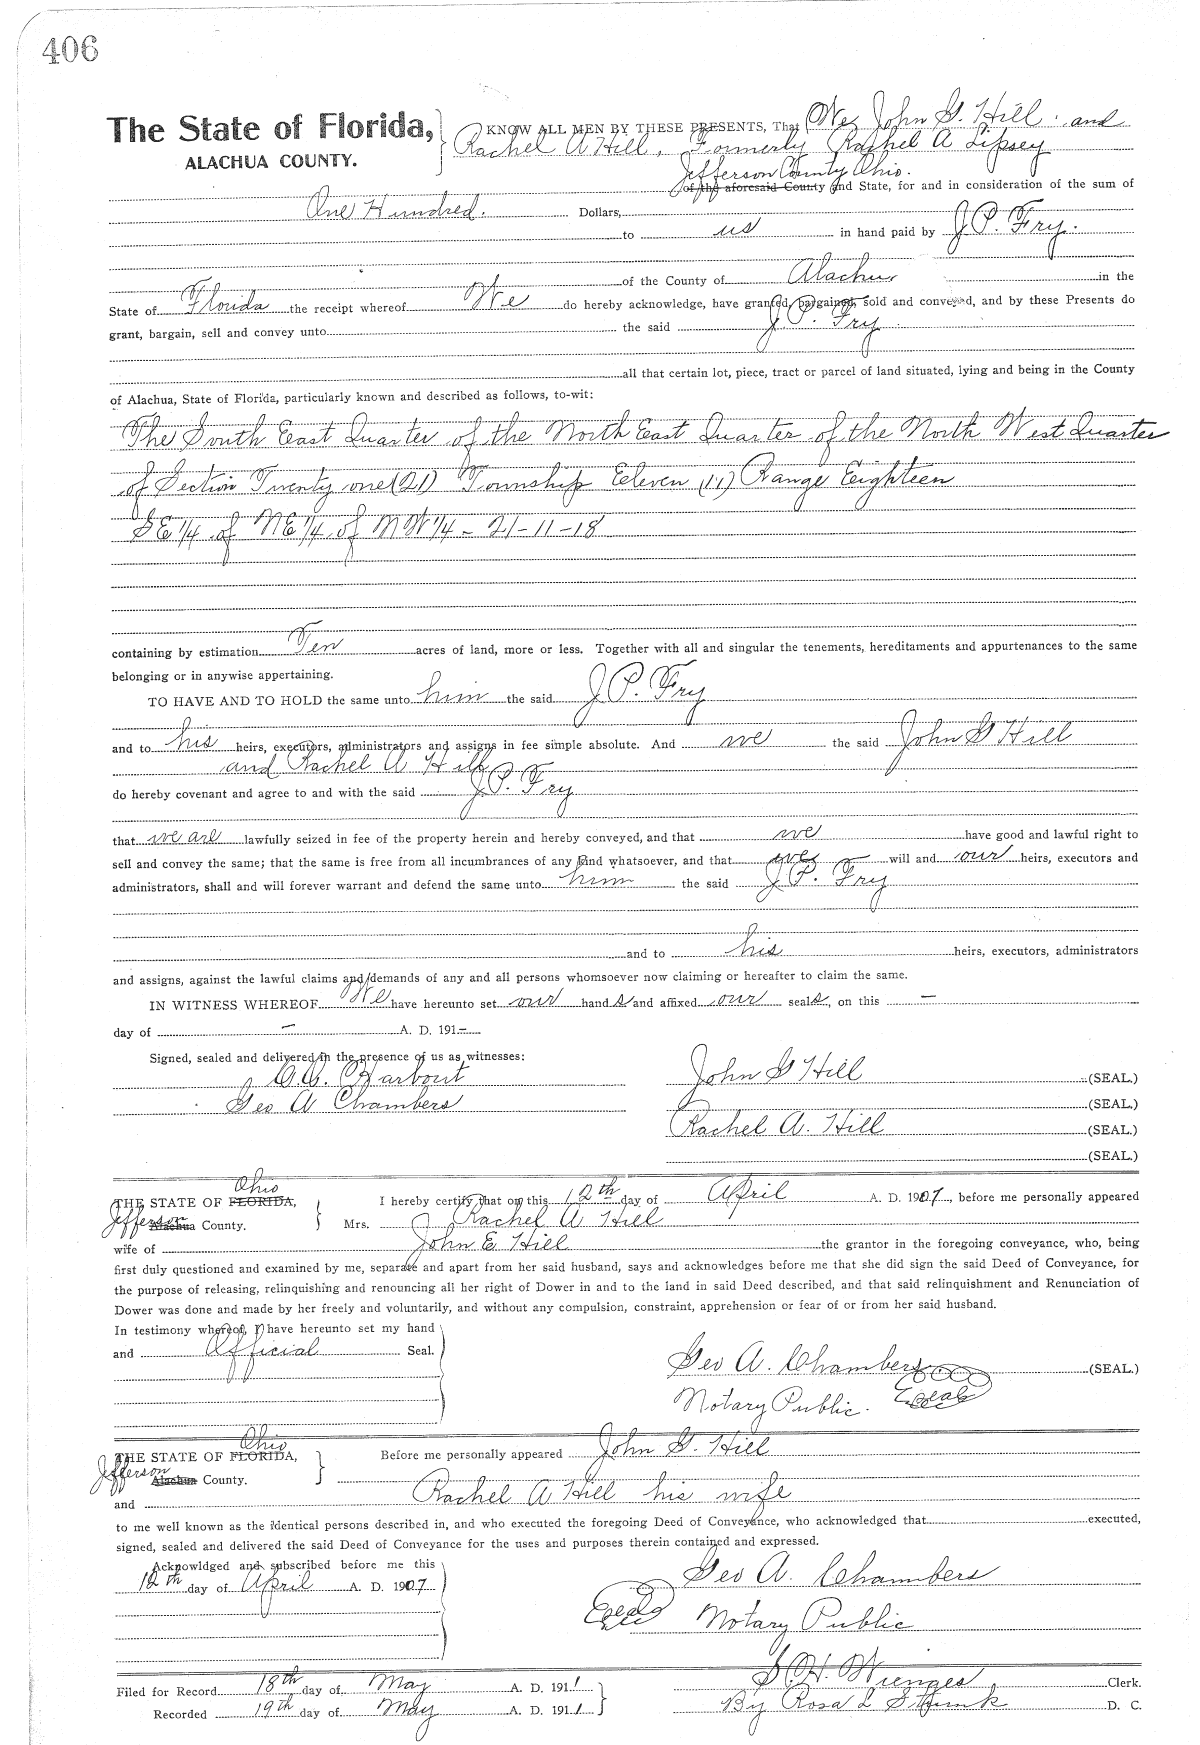 406
The State of Florida, KNOW ALL MEN BY THESE PRESENTS, That We John G. Hill and
ALACHUA COUNTY. Rachel A Hill, Formerly Rachel A Lipsey
Jefferson County Ohio.
of the aforesaid County and State, for and in consideration of the sum of
One Hundred. Dollars,
to us in hand paid by J. P. Fry.
of the County of Alachua in the
State of Florida the receipt whereof We do hereby acknowledge, have granted, bargained, sold and conveyed, and by these Presents do
grant, bargain, sell and convey unto the said J. P. Fry
all that certain lot, piece, tract or parcel of land situated, lying and being in the County
of Alachua, State of Florida, particularly known and described as follows, to-wit:
The South East Quarter of the North East Quarter of the North West Quarter
of Section Twenty one (21) Township Eleven (11) Range Eighteen
SE 1/4 of NE 1/4 of NW 1/4 - 21-11-18
containing by estimation Ten acres of land, more or less. Together with all and singular the tenements, hereditaments and appurtenances to the same
belonging or in anywise appertaining.
TO HAVE AND TO HOLD the same unto him the said J. P. Fry
and to his heirs, executors, administrators and assigns in fee simple absolute. And we the said John G Hill
and Rachel A Hill
do hereby covenant and agree to and with the said J. P. Fry
that we are lawfully seized in fee of the property herein and hereby conveyed, and that we have good and lawful right to
sell and convey the same; that the same is free from all incumbrances of any kind whatsoever, and that we will and our heirs, executors and
administrators, shall and will forever warrant and defend the same unto him the said J. P. Fry
and to his heirs, executors, administrators
and assigns, against the lawful claims and demands of any and all persons whomsoever now claiming or hereafter to claim the same.
IN WITNESS WHEREOF We have hereunto set our hand s and affixed our seal s, on this —
day of — A. D. 191 —
Signed, sealed and delivered in the presence of us as witnesses:
John G Hill (SEAL.)
Harbourt
Geo A Chambers (SEAL.)
Rachel A. Hill (SEAL.)
(SEAL.)
Ohio
THE STATE OF FLORIDA, I hereby certify that on this 12th day of April A. D. 1907, before me personally appeared
Jefferson Alachua County. Mrs. Rachel A Hill
wife of John E Hill the grantor in the foregoing conveyance, who, being
first duly questioned and examined by me, separate and apart from her said husband, says and acknowledges before me that she did sign the said Deed of Conveyance, for
the purpose of releasing, relinquishing and renouncing all her right of Dower in and to the land in said Deed described, and that said relinquishment and Renunciation of
Dower was done and made by her freely and voluntarily, and without any compulsion, constraint, apprehension or fear of or from her said husband.
In testimony whereof, I have hereunto set my hand
and Official Seal.
Geo A. Chambers (SEAL.)
Notary Public. Seal
Ohio
THE STATE OF FLORIDA, Before me personally appeared John G. Hill
Jefferson Alachua County.
and Rachel A Hill his wife
to me well known as the identical persons described in, and who executed the foregoing Deed of Conveyance, who acknowledged that executed,
signed, sealed and delivered the said Deed of Conveyance for the uses and purposes therein contained and expressed.
Acknowldged and subscribed before me this
12th day of April A. D. 1907
Geo A. Chambers
Seal Notary Public
Filed for Record 18th day of May A. D. 1911 S. H. Wienges Clerk.
Recorded 19th day of May A. D. 1911 By Rosa L D. C.